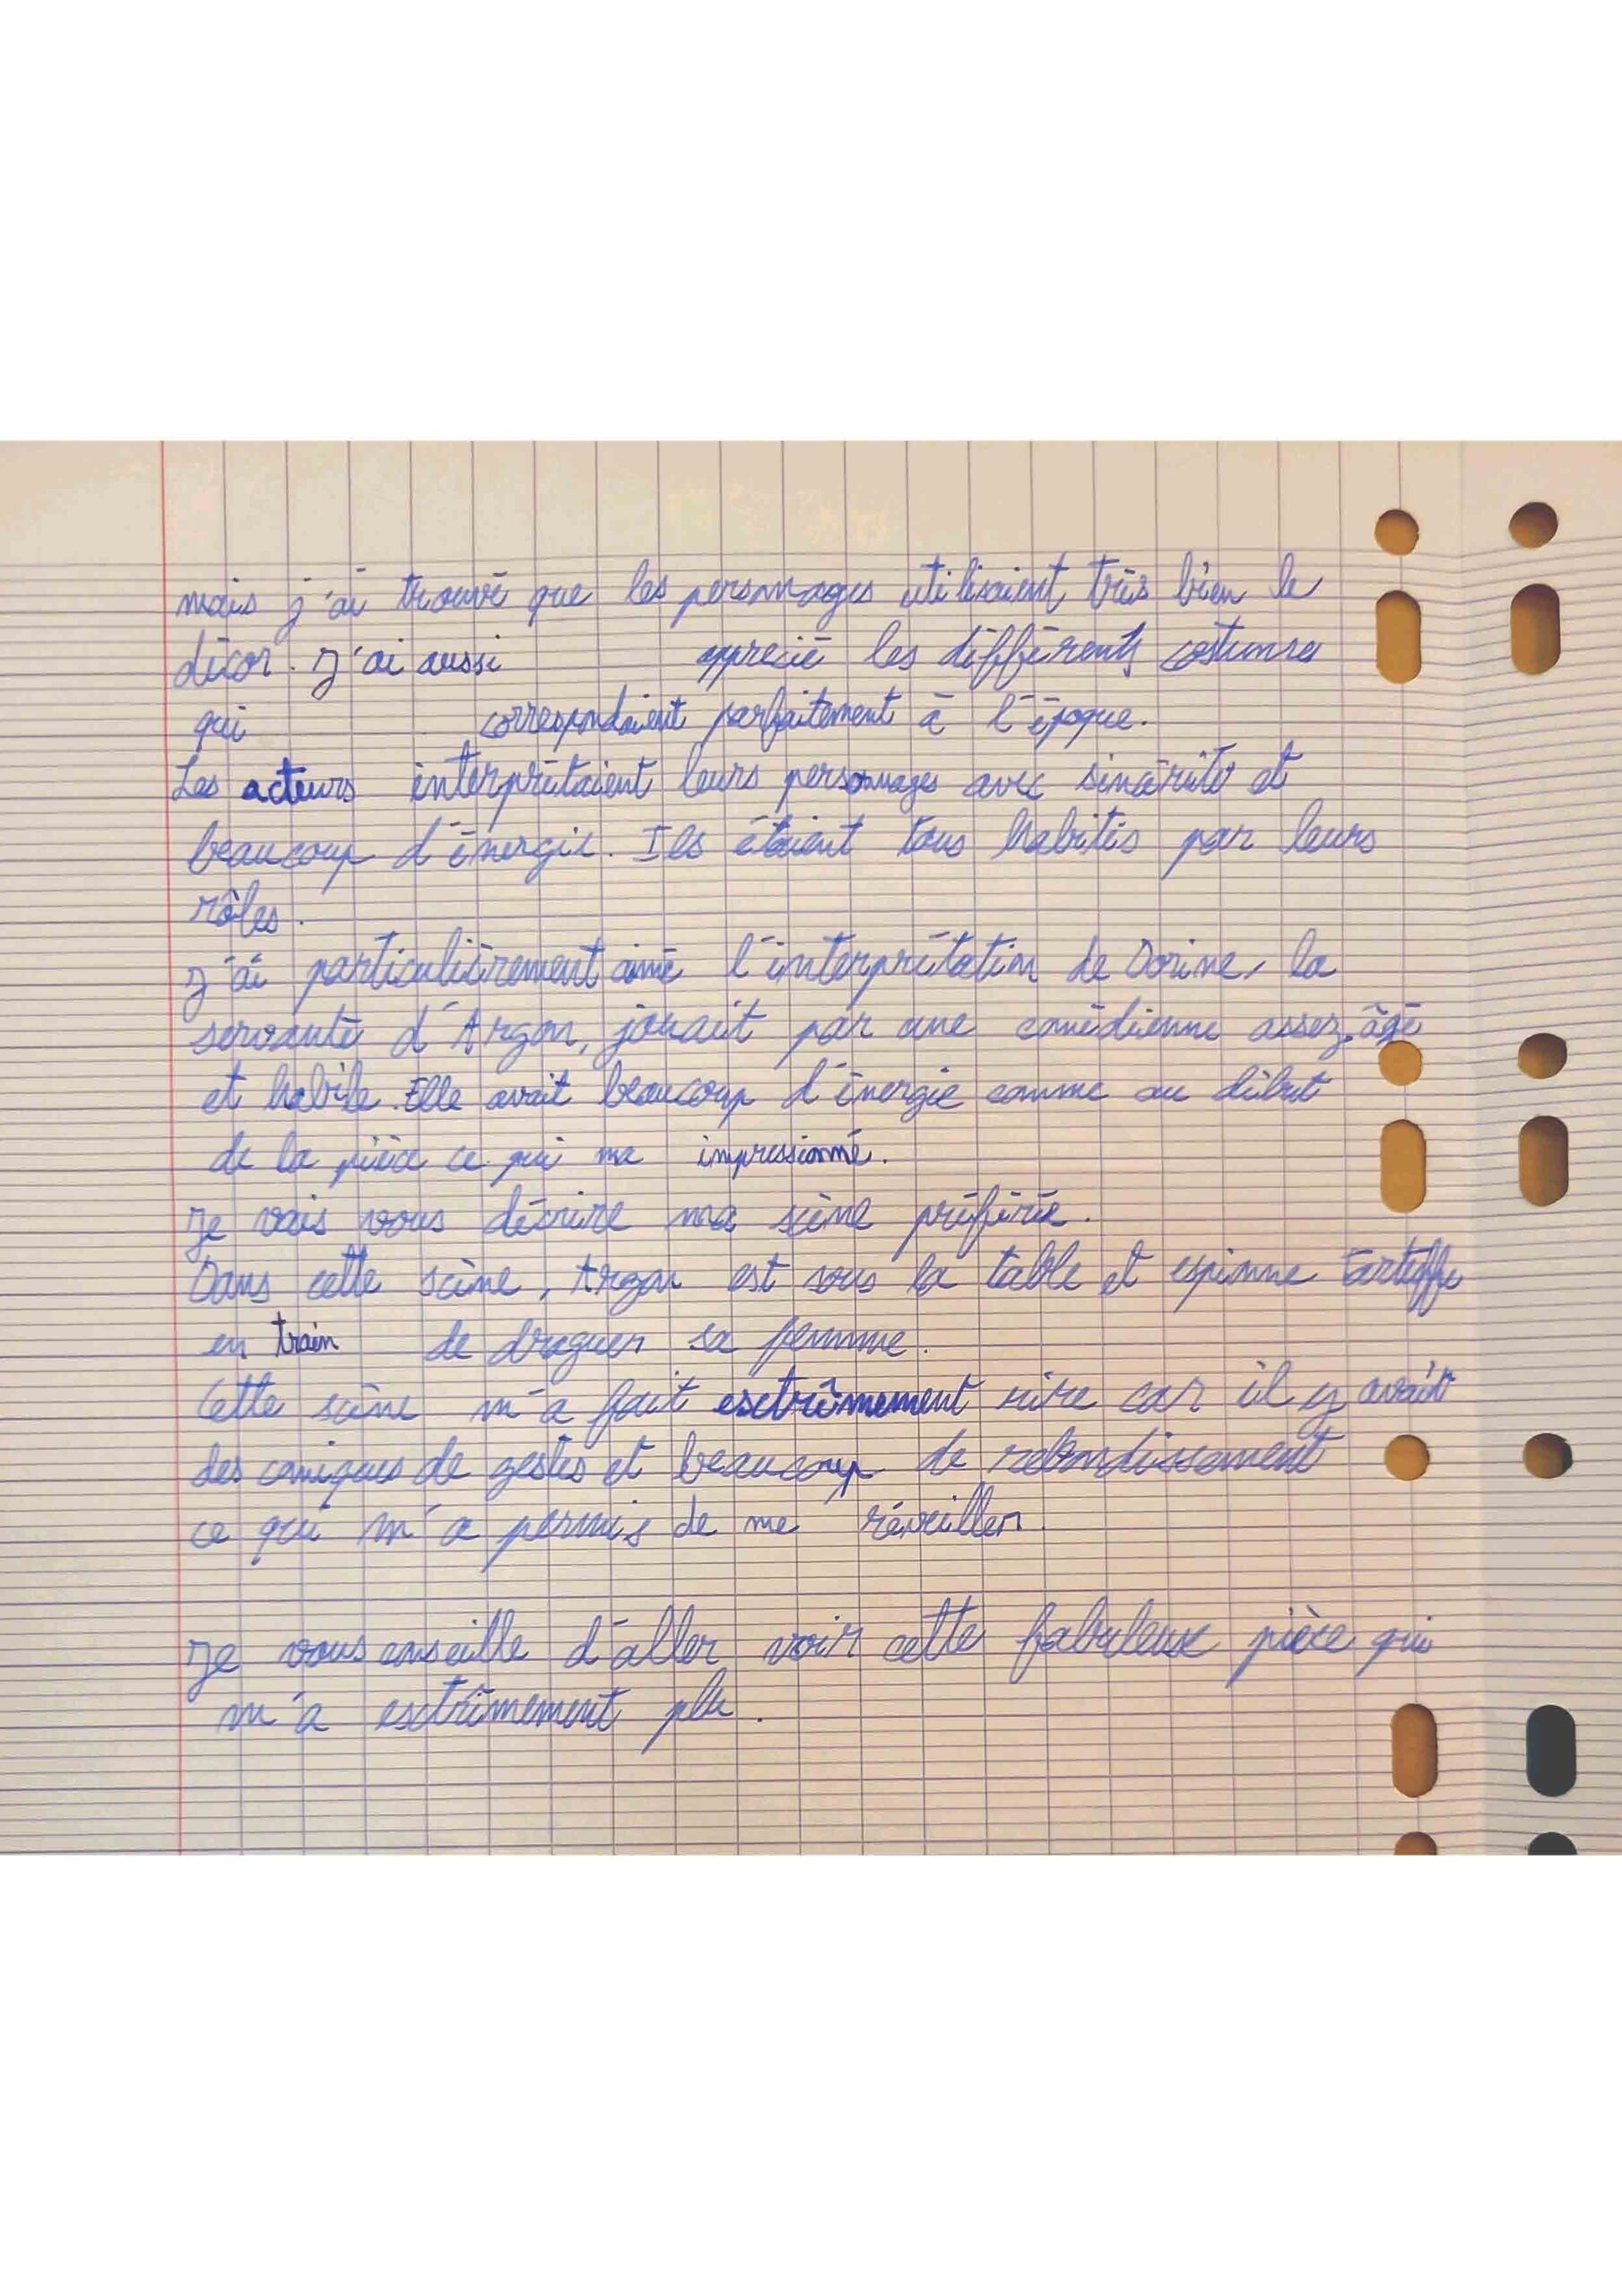 mais j'ai trouvé que les personnages utilisaient très bien le
décor. J'ai aussi apprecié les différents costumes
qui correspondaient parfaitement à l'époque.
Les acteurs interprétaient leurs personnages avec sincérité et
beaucoup d'énergie. Ils étaient tous habités par leurs
rôles.
J'ai particulièrement aimé l'interprétation de Dorine, la
servante d'Argon, jouait par une comédienne assez âgé
et habile. Elle avait beaucoup d'énergie comme au début
de la pièce ce qui ma impressionné.
Je vais vous décrire ma scène préférée.
Dans cette scène, Argon est sous la table et espionne Tartuffe
en train de draguer sa femme.
Cette scène m'a fait esctrêmement rire car il y avait
des comiques de gestes et beaucoup de rebondissement
ce qui m'a permis de me réveiller.
Je vous conseille d'aller voir cette fabuleuse pièce qui
m'a esctrêmement plu.